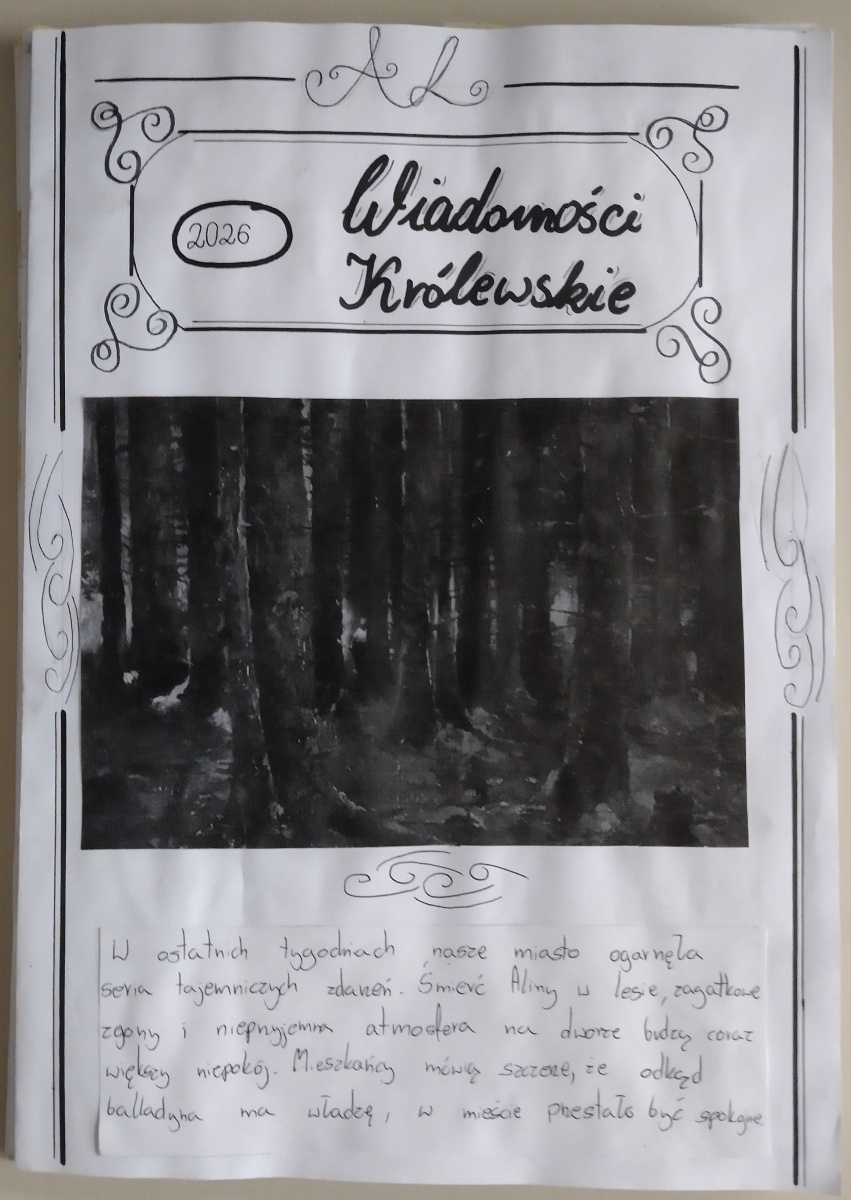 AL
2026
Wiadomości
Królewskie
W ostatnich tygodniach nasze miasto ogarnęła
seria tajemniczych zdarzeń. Śmierć Aliny w lesie, zagatkowe
zgony i nieprzyjemna atmosfera na dworze budzą coraz
większy niepokój. Mieszkańcy mówią szczerze, że odkąd
balladyna ma władzę, w mieście przestało być spokojne